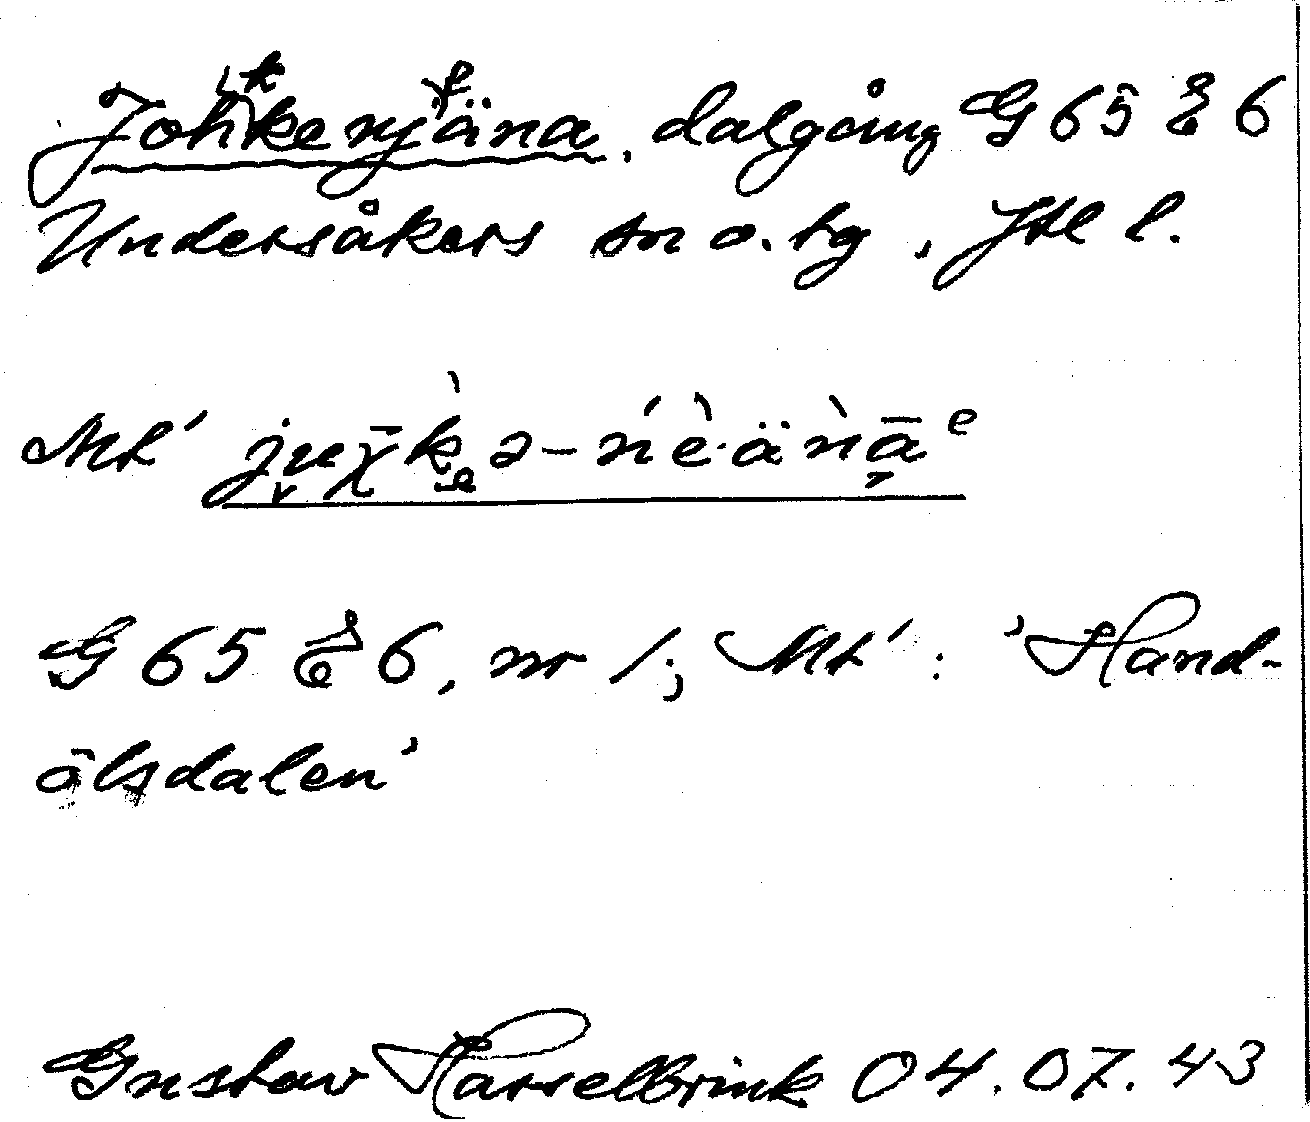 Johkenjäna, dalgång G 65 & 6
Undersåkers sn o. tg, Jtl l.
G 65 & 6, nr 1; Mt': 'Hand-
ölsdalen'
Gustav Hasselbrink 04.07.43